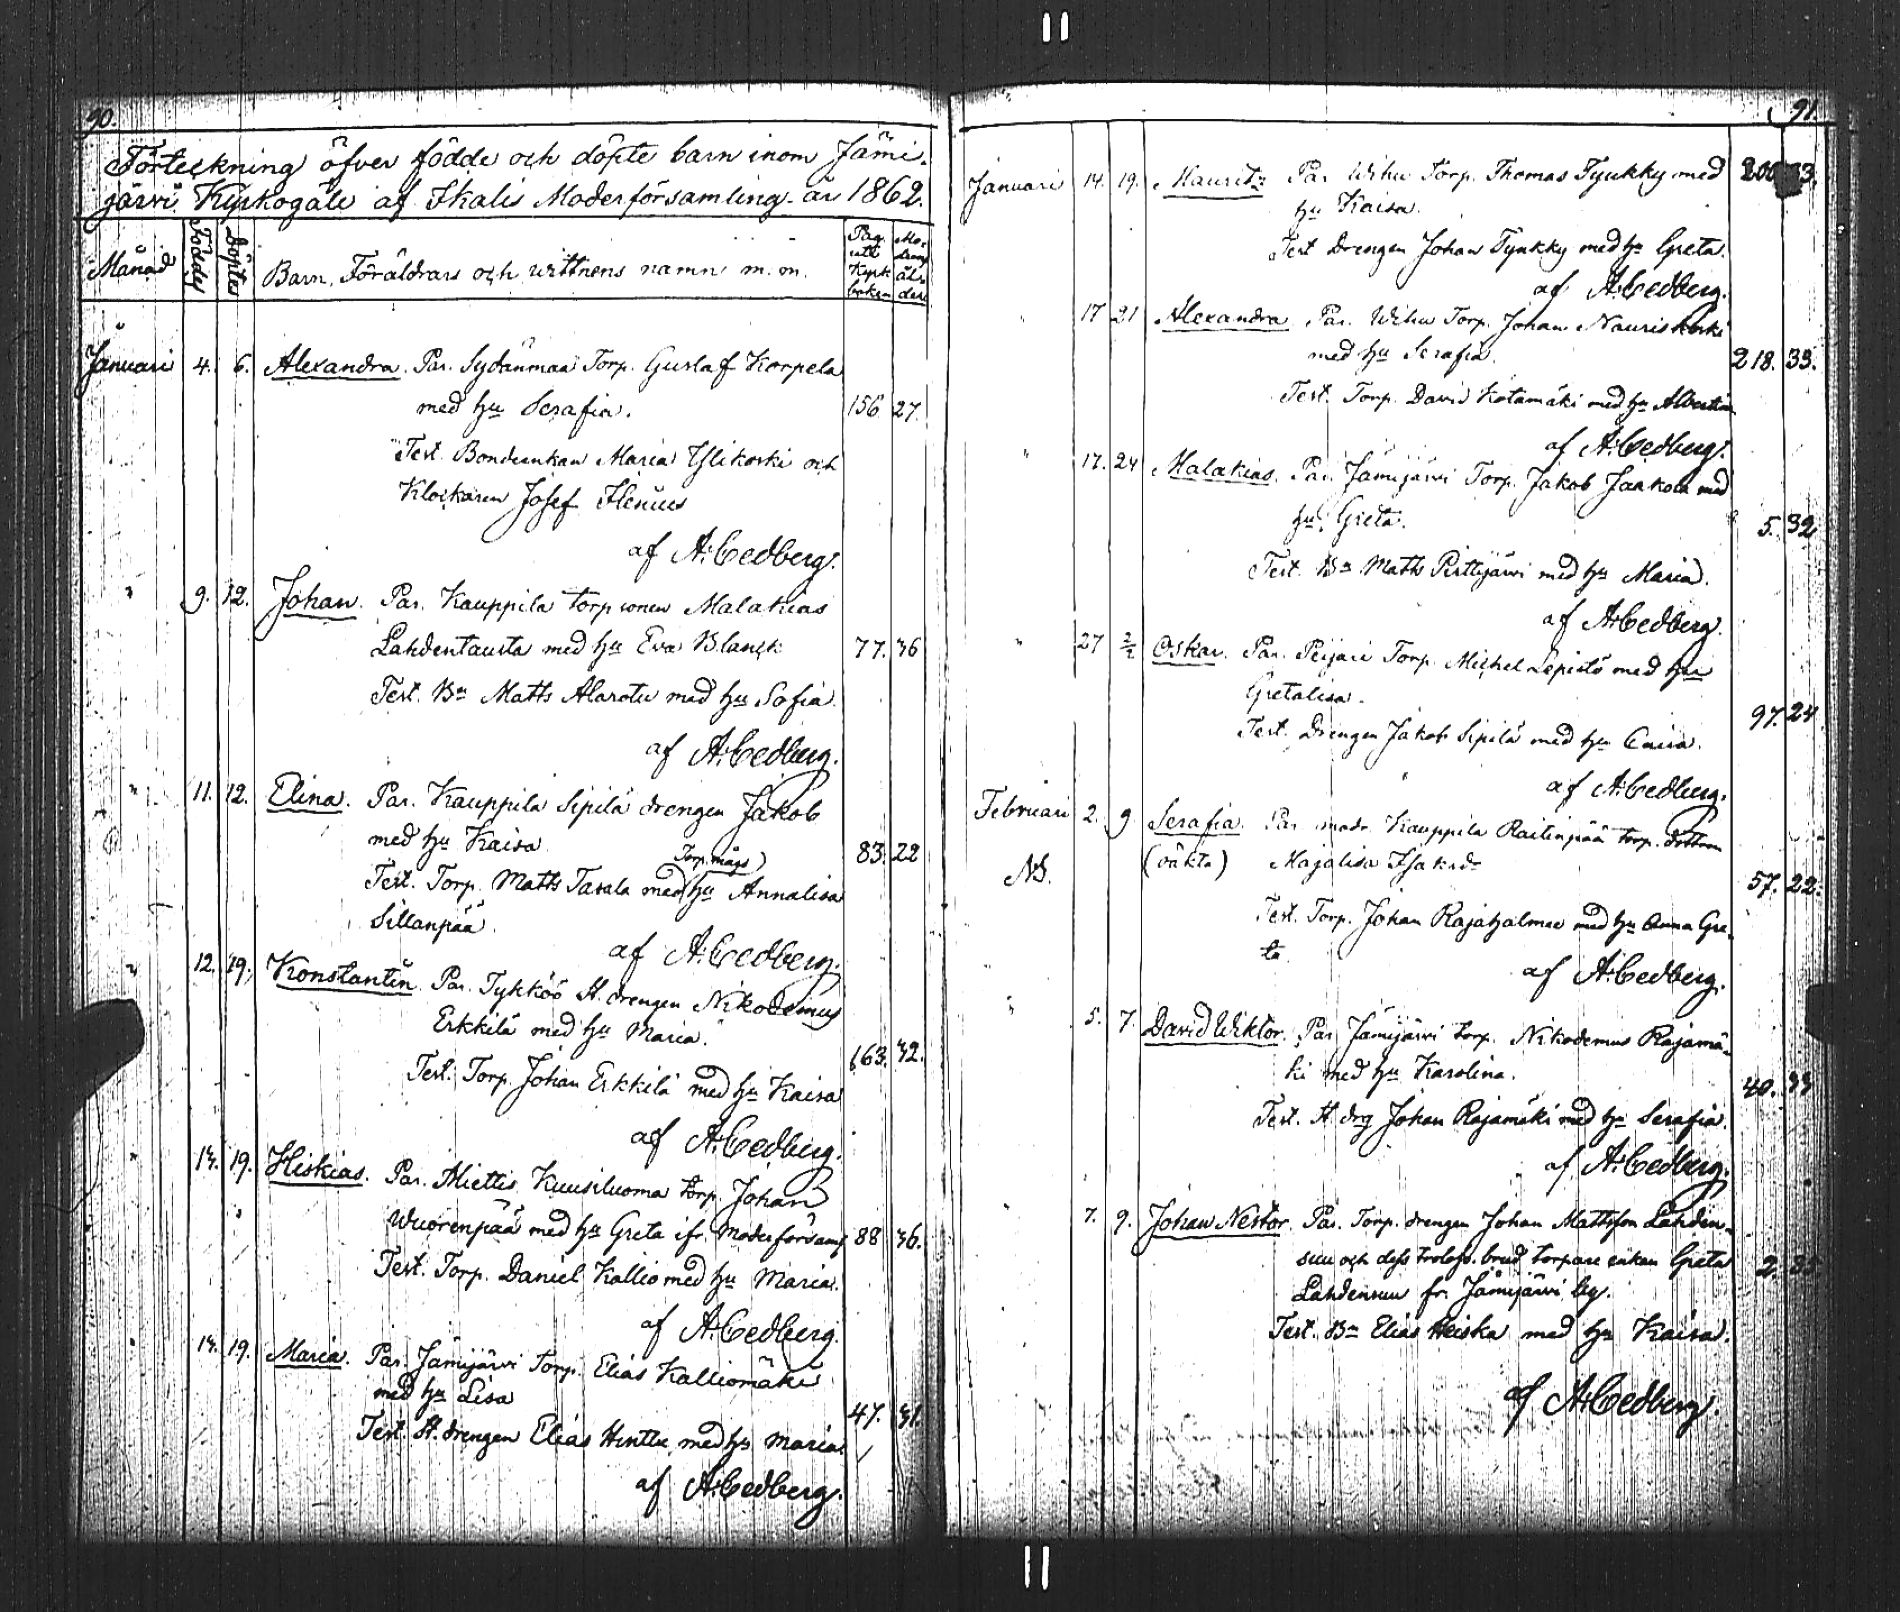 11
90.
Förteckning öfver födde och döpte barn inom Jämi-
järvi Kyrkogäle af Ikalis Moderförsamling år 1862.
Månad Födde Döptes Barn, Föräldrars och wittnens namn m. m. Pag. uti Kyrk boken Mo- drens ål- der
Januari 4. 6. Alexandra. Par. Sydänmaa Torp. Gustaf Korpela
med hu Serafia. 156 27.
Test. Bondeenkan Maria Ylikoski och
Klockaren Josef Ilenius
af A. Cedberg.
" 9. 12. Johan. Par. Kauppila torp sonen Malakias
Lahdentausta med hu Eva Blanck 77. 36
Test. Bn Matts Alarotu med hu Sofia
af A. Cedberg.
" 11. 12. Elina. Par. Kauppila Sipilä drengen Jakob
med hu Kaisa 83. 22
Torp. mågs)
Test. Torp. Matts Tasala med hu Annalisa
Sillanpää.
af A. Cedberg.
" 12. 19. Konstantin. Par. Tykköö St. drengen Nikodemus
Erkkilä med hu Maria. 163. 32.
Test. Torp. Johan Erkkilä med hu Kaisa
af A. Cedberg.
" 14. 19. Hiskias. Par. Miettis Kuusiluoma torp. Johan
Wuorenpää med hu Greta ifr. Moderförsaml 88 36.
Test. Torp. Daniel Kallio med hu Maria.
af A. Cedberg.
" 14. 19. Maria. Par. Jämijärvi Torp. Elias Kalliomäki
med hu Lisa 47. 31.
Test St. drengen Elias Hinttu med hu Maria
af A. Cedberg.
91.
Januari 14. 19. Mauritz Par. Wihu Torp. Thomas Tyukky med 200 33.
hu Kaisa.
Test Drengen Johan Tyukky med hu Greta.
af A. Cedberg.
" 17 21 Alexandra Par. Wihu Torp. Johan Nauriskoski
med hu Serafia. 218. 33.
Test. Torp. David Kotamäki med hu Albertina
af A. Cedberg.
" 17. 24 Malakias. Par. Jämijärvi Torp. Jakob Jaakola med
hu Greta. 5. 32
Test. Bn Matts Pirttijärvi med hu Maria.
af A. Cedberg.
" 27 2/2 Oskar. Par. Peijari Torp. Michel Lepistö med hu
Gretalisa. 97. 24
Test. Drengen Jakob Sipilä med hu Caisa.
af A. Cedberg.
Februari 2. 9 Serafia. Par. modr. Kauppila Raitinpää torp. dottren
NB. (oäkta) Majalisa Isaksdr 57. 22.
Test. Torp. Johan Rajahalmee med hu Anna Gre-
ta.
af A. Cedberg.
" 5. 7. David Wiktor. Par. Jämijärvi torp. Nikodemus Rajamä-
ki med hu Karolina. 40.
Test. St. drg Johan Rajamäki med hu Serafia.
af A. Cedberg.
" 7. 9. Johan Nestor. Par. Torp. drengen Johan Mattsson Lahden-
suu och dess trolof. brud torpare enkan Greta 2.
Lahdensuu fr. Jämijärvi by.
Test. Bn Elias Heiska med hu Kaisa.
af A. Cedberg.
11